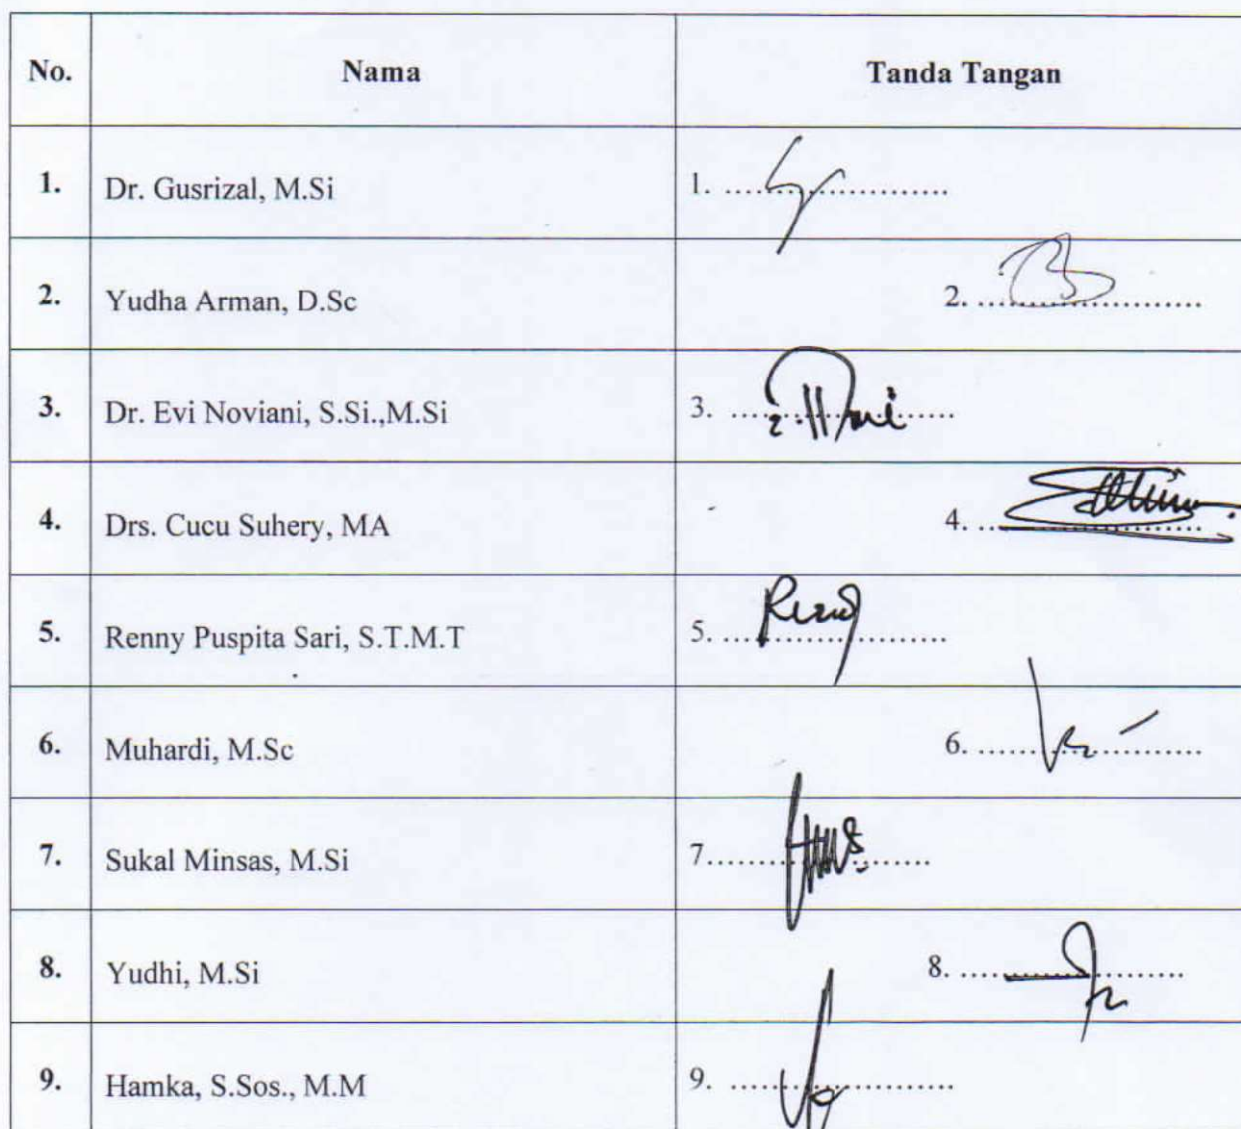 No. Nama Tanda Tangan
1. Dr. Gusrizal, M.Si 1. ........................
2. Yudha Arman, D.Sc 2. ........................
3. Dr. Evi Noviani, S.Si.,M.Si 3. ........................
4. Drs. Cucu Suhery, MA 4. ........................
5. Renny Puspita Sari, S.T.M.T 5. ........................
6. Muhardi, M.Sc 6. ........................
7. Sukal Minsas, M.Si 7........................
8. Yudhi, M.Si 8. ........................
9. Hamka, S.Sos., M.M 9. ........................